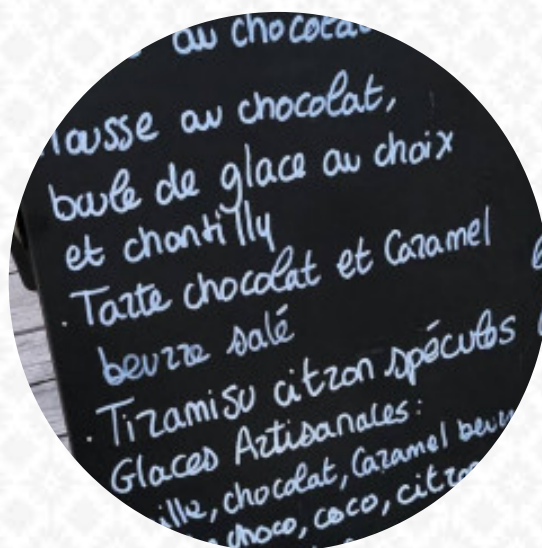 au chocolat
mousse au chocolat,
boule de glace au choix
et chantilly
. Tarte chocolat et Caramel
beurre salé
. Tiramisu citron spéculos
Glaces Artisanales:
chocolat, Caramel
choco, coco,